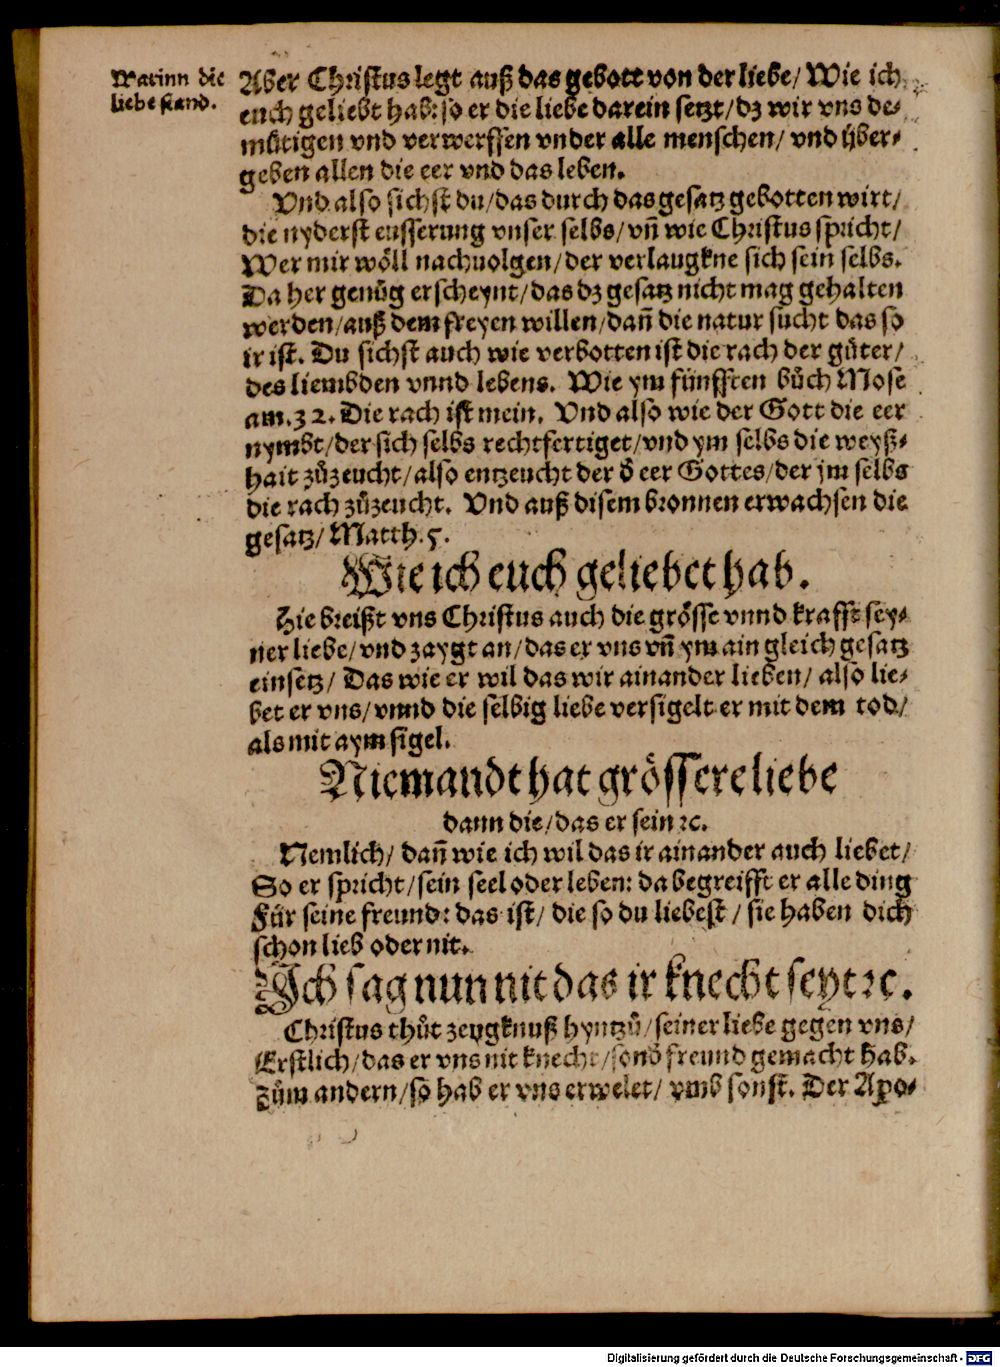 Warinn die
liebe stand.
Aber Christus legt auß das gebott von der liebe/ Wie ich
euch geliebt hab: so er die liebe darein setzt/ dz wir vns de⸗
muͤtigen vnd verwerffen vnder alle menschen/ vnd uͤber⸗
geben allen die eer vnd das leben.
Vnd also sichst du/ das durch das gesatz gebotten wirt/
die nyderst eusserung vnser selbs/ vn̄ wie Christus spricht/
Wer mir woͤll nachuolgen/ der verlaugkne sich sein selbs.
Da her genuͦg erscheynt/ das dz gesatz nicht mag gehalten
werden/ auß dem freyen willen/ dan̄ die natur suͦcht das so
ir ist. Du sichst auch wie verbotten ist die rach der guͤter/
des liembden vnnd lebens. Wie ym fuͤnfften buͦch Mose
am. 32. Die rach ist mein. Vnd also wie der Gott die eer
nymbt/ der sich selbs rechtfertiget/ vnd ym selbs die weyß⸗
hait zuͦzeucht/ also entzeucht der ð eer Gottes/ der jm selbs
die rach zuͦzeucht. Vnd auß disem bronnen erwachsen die
gesatz/ Matth. 5.
Wie ich euch geliebet hab.
Hie breißt vns Christus auch die groͤsse vnnd krafft sey⸗
ner liebe/ vnd zaygt an/ das er vns vn̄ ym ain gleich gesatz
einsetz/ Das wie er wil das wir ainander lieben/ also lie⸗
bet er vns/ vnnd die selbig liebe versigelt er mit dem tod/
als mit aym sigel.
Niemandt hat groͤssere liebe
dann die/ das er sein ꝛc.
Nemlich/ dan̄ wie ich wil das ir ainander auch liebet/
So er spricht/ sein seel oder leben: da begreifft er alle ding
Fuͤr seine freund: das ist/ die so du liebest/ sie haben dich
schon lieb oder nit.
Ich sag nun nit das ir knecht seyt ꝛc.
Christus thuͦt zeugknuß hyntzuͦ/ seiner liebe gegen vns/
Erstlich/ das er vns nit knecht/ sonð freund gemacht hab.
Zuͦm andern/ so hab er vns erwelet/ vmb sonst. Der Apo⸗
Digitalisierung gefördert durch die Deutsche Forschungsgemeinschaft - DFG